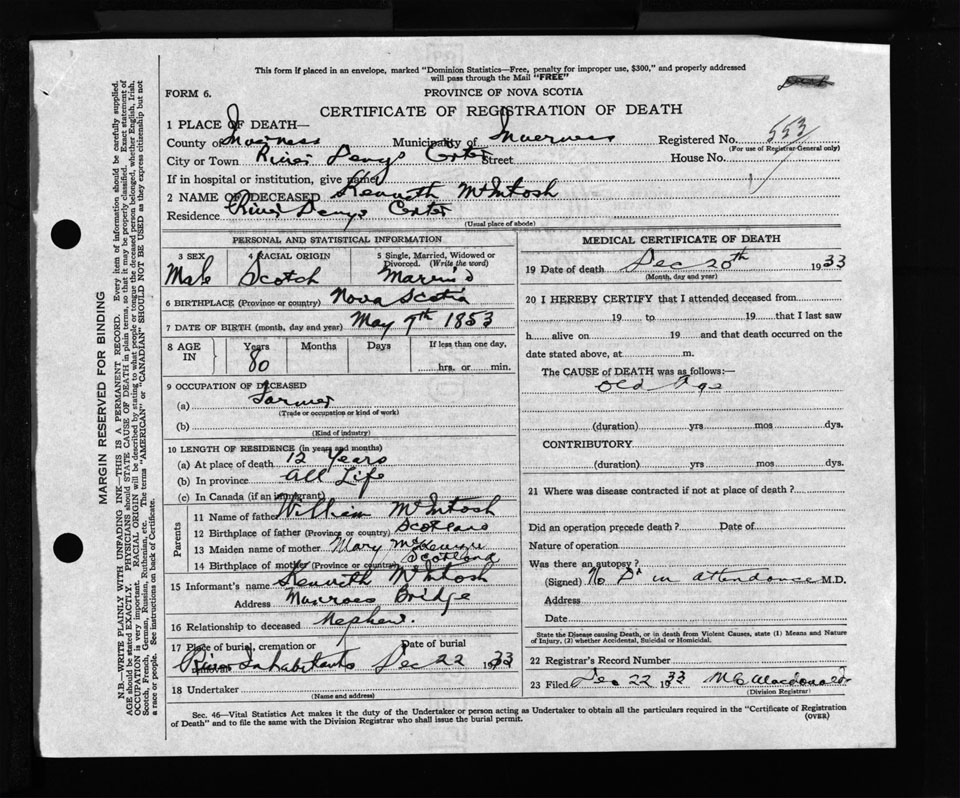 This form if placed in an envelope, marked "Dominion Statistics—Free, penalty for improper use, $300," and properly addressed
will pass through the Mail "FREE"
FORM 6.
PROVINCE OF NOVA SCOTIA
CERTIFICATE OF REGISTRATION OF DEATH
1 PLACE OF DEATH—
County of Inverness Municipality of Inverness Registered No. 553
(For use of Registrar General only)
City or Town River Denys Center Street House No.
If in hospital or institution, give name
2 NAME OF DECEASED Kenneth McIntosh
Residence River Denys Center
(Usual place of abode)
PERSONAL AND STATISTICAL INFORMATION
3 SEX 4 RACIAL ORIGIN 5 Single, Married, Widowed or
Divorced. (Write the word)
Male Scotch Married
6 BIRTHPLACE (Province or country) Nova Scotia
7 DATE OF BIRTH (month, day and year) May 9th 1853
8 AGE IN Years Months Days If less than one day,
80 hrs. or min.
9 OCCUPATION OF DECEASED
(a) Farmer
(Trade or occupation or kind of work)
(b)
(Kind of industry)
10 LENGTH OF RESIDENCE (in years and months)
(a) At place of death 12 Years
(b) In province All Life
(c) In Canada (if an immigrant)
Parents
11 Name of father William McIntosh
12 Birthplace of father (Province or country) Scotland
13 Maiden name of mother Mary McKenzie
14 Birthplace of mother (Province or country) Scotland
15 Informant's name Kenneth McIntosh
Address Munroes Bridge
16 Relationship to deceased Nephew.
17 Place of burial, cremation or removal Date of burial
River Inhabitants Dec 22 1933
18 Undertaker
(Name and address)
MEDICAL CERTIFICATE OF DEATH
19 Date of death Dec 20th 1933
(Month, day and year)
20 I HEREBY CERTIFY that I attended deceased from
19 to 19 that I last saw
h alive on 19 and that death occurred on
date stated above, at m.
The CAUSE of DEATH was as follows:—
Old Age
(duration) yrs mos dys.
CONTRIBUTORY
(duration) yrs mos dys.
21 Where was disease contracted if not at place of death?
Did an operation precede death? Date of
Nature of operation
Was there an autopsy?
(Signed) No Dr in attendance M.D.
Address
Date
State the Disease causing Death, or in death from Violent Causes, state (1) Means and Nature
of Injury, (2) whether Accidental, Suicidal or Homicidal.
22 Registrar's Record Number
23 Filed Dec 22 1933 M C Macdonald
(Division Registrar)
Sec. 46—Vital Statistics Act makes it the duty of the Undertaker or person acting as Undertaker to obtain all the particulars required in the "Certificate of Registration
of Death" and to file the same with the Division Registrar who shall issue the burial permit.
(OVER)
MARGIN RESERVED FOR BINDING
N.B.—WRITE PLAINLY WITH UNFADING INK—THIS IS A PERMANENT RECORD. Every item of information should be carefully supplied.
AGE should be stated EXACTLY. PHYSICIANS should STATE CAUSE OF DEATH in plain terms, so that it may be properly classified. Exact statement of
OCCUPATION is very important. RACIAL ORIGIN will be described by stating to what people or tongue the deceased person belonged, whether English, Irish,
Scotch, French, German, Russian, Ruthenian, etc. The terms "AMERICAN" or "CANADIAN" SHOULD NOT BE USED as they express citizenship but not
a race or people. See instructions on back of Certificate.